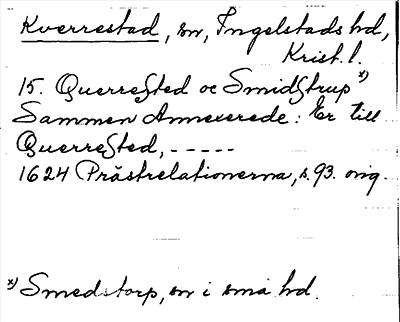 Kverrestad, sn, Ingelstads hd,
Krist. l.
15. Querreſted oc Smidſtrup x)
Sammen Annexerede: Er till
Querreſted, -----
1624 Prästrelationerna, s. 93. orig.
x) Smedstorp, sn i sma hd.